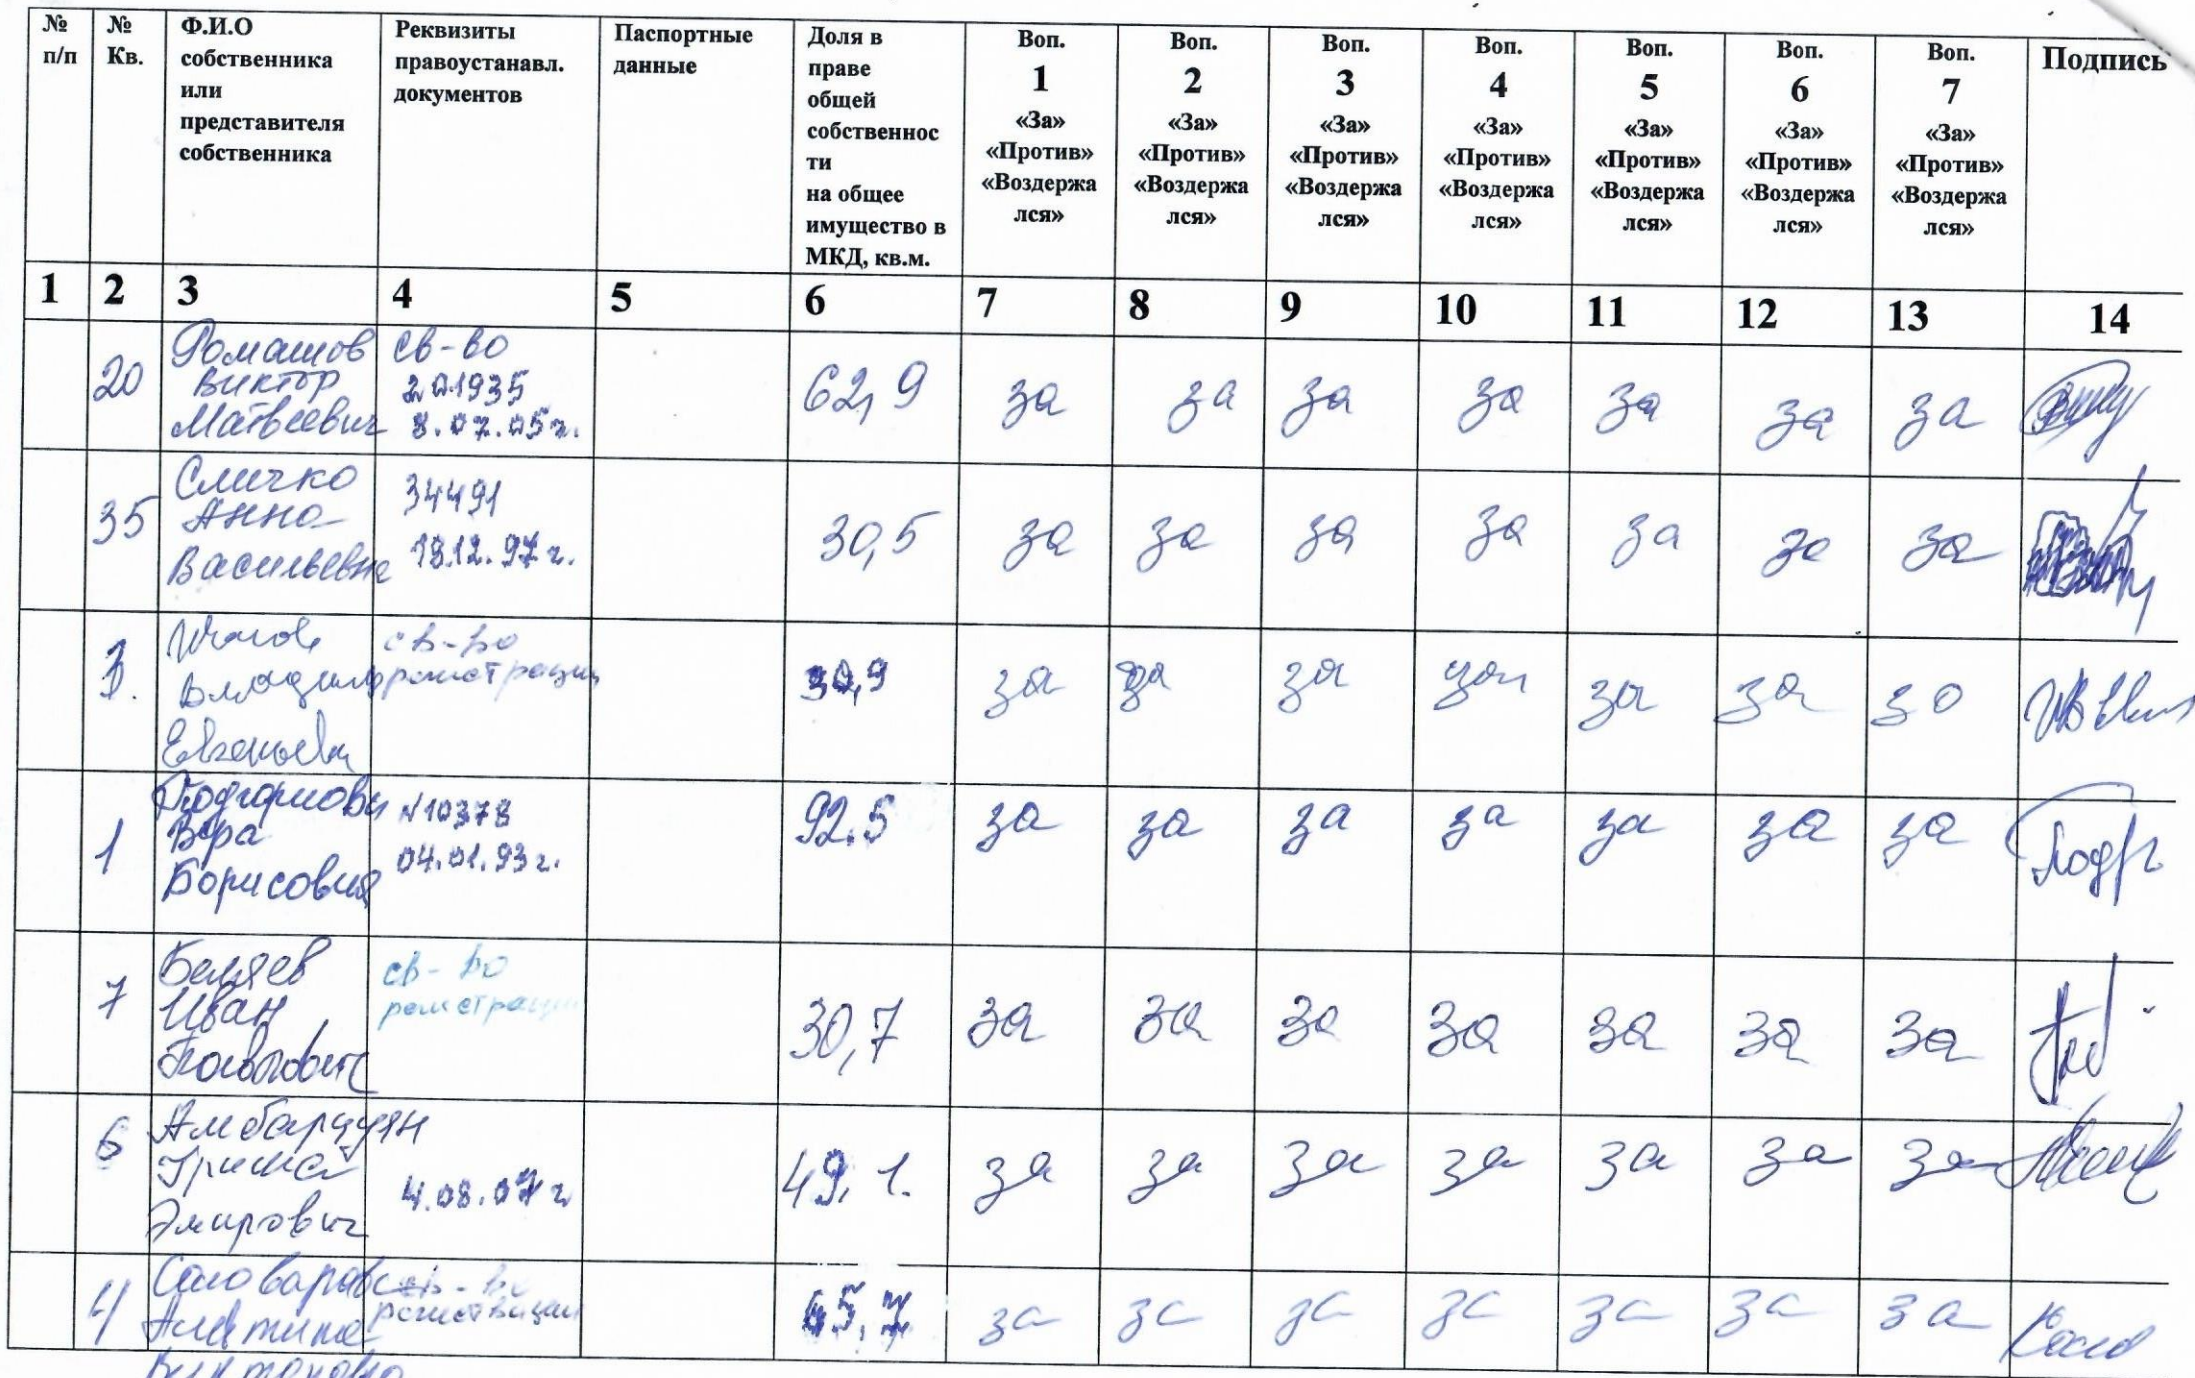 № п/п
№ Кв.
Ф.И.О
собственника
или
представителя
собственника
Реквизиты
правоустанавл.
документов
Паспортные
данные
Доля в
праве
общей
собственнос
ти
на общее
имущество в
МКД, кв.м.
Воп.
1
«За»
«Против»
«Воздержа
лся»
Воп.
2
«За»
«Против»
«Воздержа
лся»
Воп.
3
«За»
«Против»
«Воздержа
лся»
Воп.
4
«За»
«Против»
«Воздержа
лся»
Воп.
5
«За»
«Против»
«Воздержа
лся»
Воп.
6
«За»
«Против»
«Воздержа
лся»
Воп.
7
«За»
«Против»
«Воздержа
лся»
Подпись
1 2 3 4 5 6 7 8 9 10 11 12 13 14
20
Ромашов
Виктор
Матвеевич
св-во
201935
8.07.05г.
62,9 за за за за за за за
35
Сличко
Анна
Васильевна
34491
19.12.97г.
30,5 за за за за за за за
Владимир
Евгеньевич
св-во
регистрации
30,9 за за за за за за за
1
Подгорнова
Вера
Борисовна
N10378
04.01.93г.
92.5 за за за за за за за
7
Беляев
Иван
Павлович
св-во
регистрации
30,7 за за за за за за за
6
Амбарцумян
Гриша
Эмирович
4.08.07г
49,1. за за за за за за за
4
Алевтина
св-во
регистрации
65,7 за за за за за за за